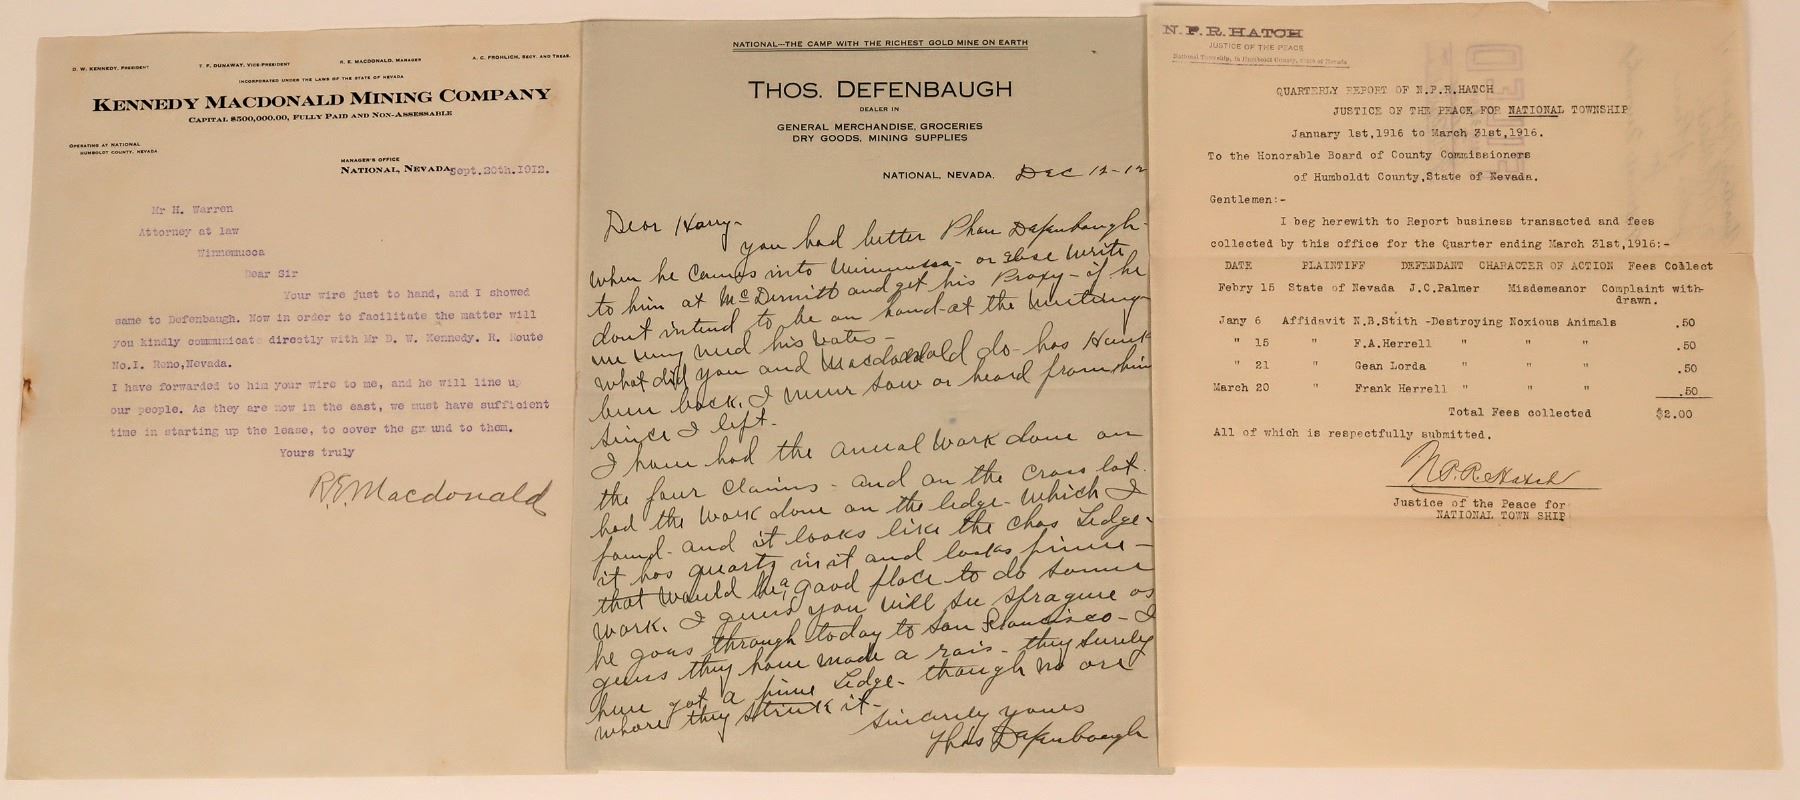 D. W. KENNEDY, PRESIDENT
T. F. DUNAWAY, VICE-PRESIDENT
R. E. MACDONALD, MANAGER
A. C. FROHLICH, SECY. AND TREAS.
INCORPORATED UNDER THE LAWS OF THE STATE OF NEVADA
KENNEDY MACDONALD MINING COMPANY
CAPITAL $500,000.00, FULLY PAID AND NON-ASSESSABLE
OPERATING AT NATIONAL
HUMBOLDT COUNTY, NEVADA
MANAGER'S OFFICE
NATIONAL, NEVADA, Sept.20th.1912.
Mr H. Warren
Attorney at law
Winnemucca
Dear Sir
Your wire just to hand, and I showed
same to Defenbaugh. Now in order to facilitate the matter will
you kindly communicate directly with Mr D. W. Kennedy. R. Route
No.I. Reno,Nevada.
I have forwarded to him your wire to me, and he will line up
our people. As they are now in the east, we must have sufficient
time in starting up the lease, to cover the gr und to them.
Yours truly
R.E. Macdonald
NATIONAL—THE CAMP WITH THE RICHEST GOLD MINE ON EARTH
THOS. DEFENBAUGH
DEALER IN
GENERAL MERCHANDISE, GROCERIES
DRY GOODS, MINING SUPPLIES
NATIONAL, NEVADA, Dec 12-12
Dear Harry-
you had better Phon Defenbaugh-
when he comes into Winnmucca- or Else Write
to him at McDermitt and get his Proxy- if he
dont intend to be on hand-at the meeting
we may need his votes-
What did you and Macdonald do- has Hank
been back. I never saw or heard from him
Since I left.
I have had the anual Work done on
the four Claims- and on the Cross lot
had the work done on the ledge- which I
found- and it looks like the Chas Ledge-
it has quartz in it and looks fine-
that would be a good place to do some
work. I guess you will see Sprague as
he goes through today to San Francisco- I
guess they have made a rais- they surely
have got a fine Ledge- though no ore
whare they struck it-
Sincerely yours
Thos Defenbaugh
N.P.R.HATCH
JUSTICE OF THE PEACE
National Township, in Humboldt County, State of Nevada
QUARTERLY REPORT OF N.P.R.HATCH
JUSTICE OF THE PEACE FOR NATIONAL TOWNSHIP
January 1st,1916 to March 31st,1916.
To the Honorable Board of County Commissioners
of Humboldt County,State of Nevada.
Gentlemen:-
I beg herewith to Report business transacted and fees
collected by this office for the Quarter ending March 31st,1916:-
DATE PLAINTIFF DEFENDANT CHARACTER OF ACTION Fees Collect
Febry 15 State of Nevada J.C.Palmer Misdemeanor Complaint with-
drawn.
Jany 6 Affidavit N.B.Stith -Destroying Noxious Animals .50
" 15 " F.A.Herrell " " " .50
" 21 " Gean Lorda " " " .50
March 20 " Frank Herrell " " " .50
Total Fees collected $2.00
All of which is respectfully submitted.
N.P.R.Hatch
Justice of the Peace for
NATIONAL TOWN SHIP